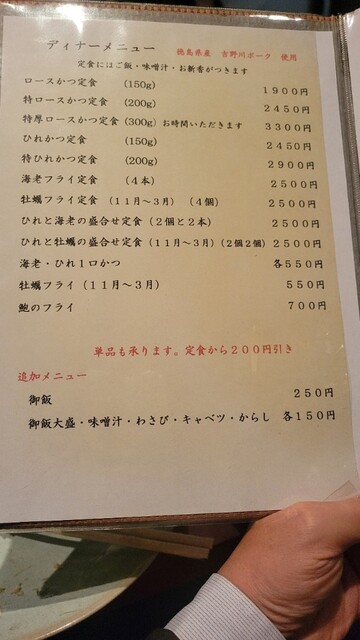 ディナーメニュー 徳島県産 吉野川ポーク 使用
定食にはご飯・味噌汁・お新香がつきます
ロースかつ定食 (150g) 1900円
特ロースかつ定食 (200g) 2450円
特厚ロースかつ定食 (300g) お時間いただきます 3300円
ひれかつ定食 (150g) 2450円
特ひれかつ定食 (200g) 2900円
海老フライ定食 (4本) 2500円
牡蠣フライ定食 (11月～3月) (4個) 2500円
ひれと海老の盛合せ定食(2個と2本) 2500円
ひれと牡蠣の盛合せ定食(11月～3月)(2個2個) 2500円
海老・ひれ1口かつ 各550円
牡蠣フライ(11月～3月) 550円
鮑のフライ 700円
単品も承ります。定食から200円引き
追加メニュー
御飯 250円
御飯大盛・味噌汁・わさび・キャベツ・からし 各150円